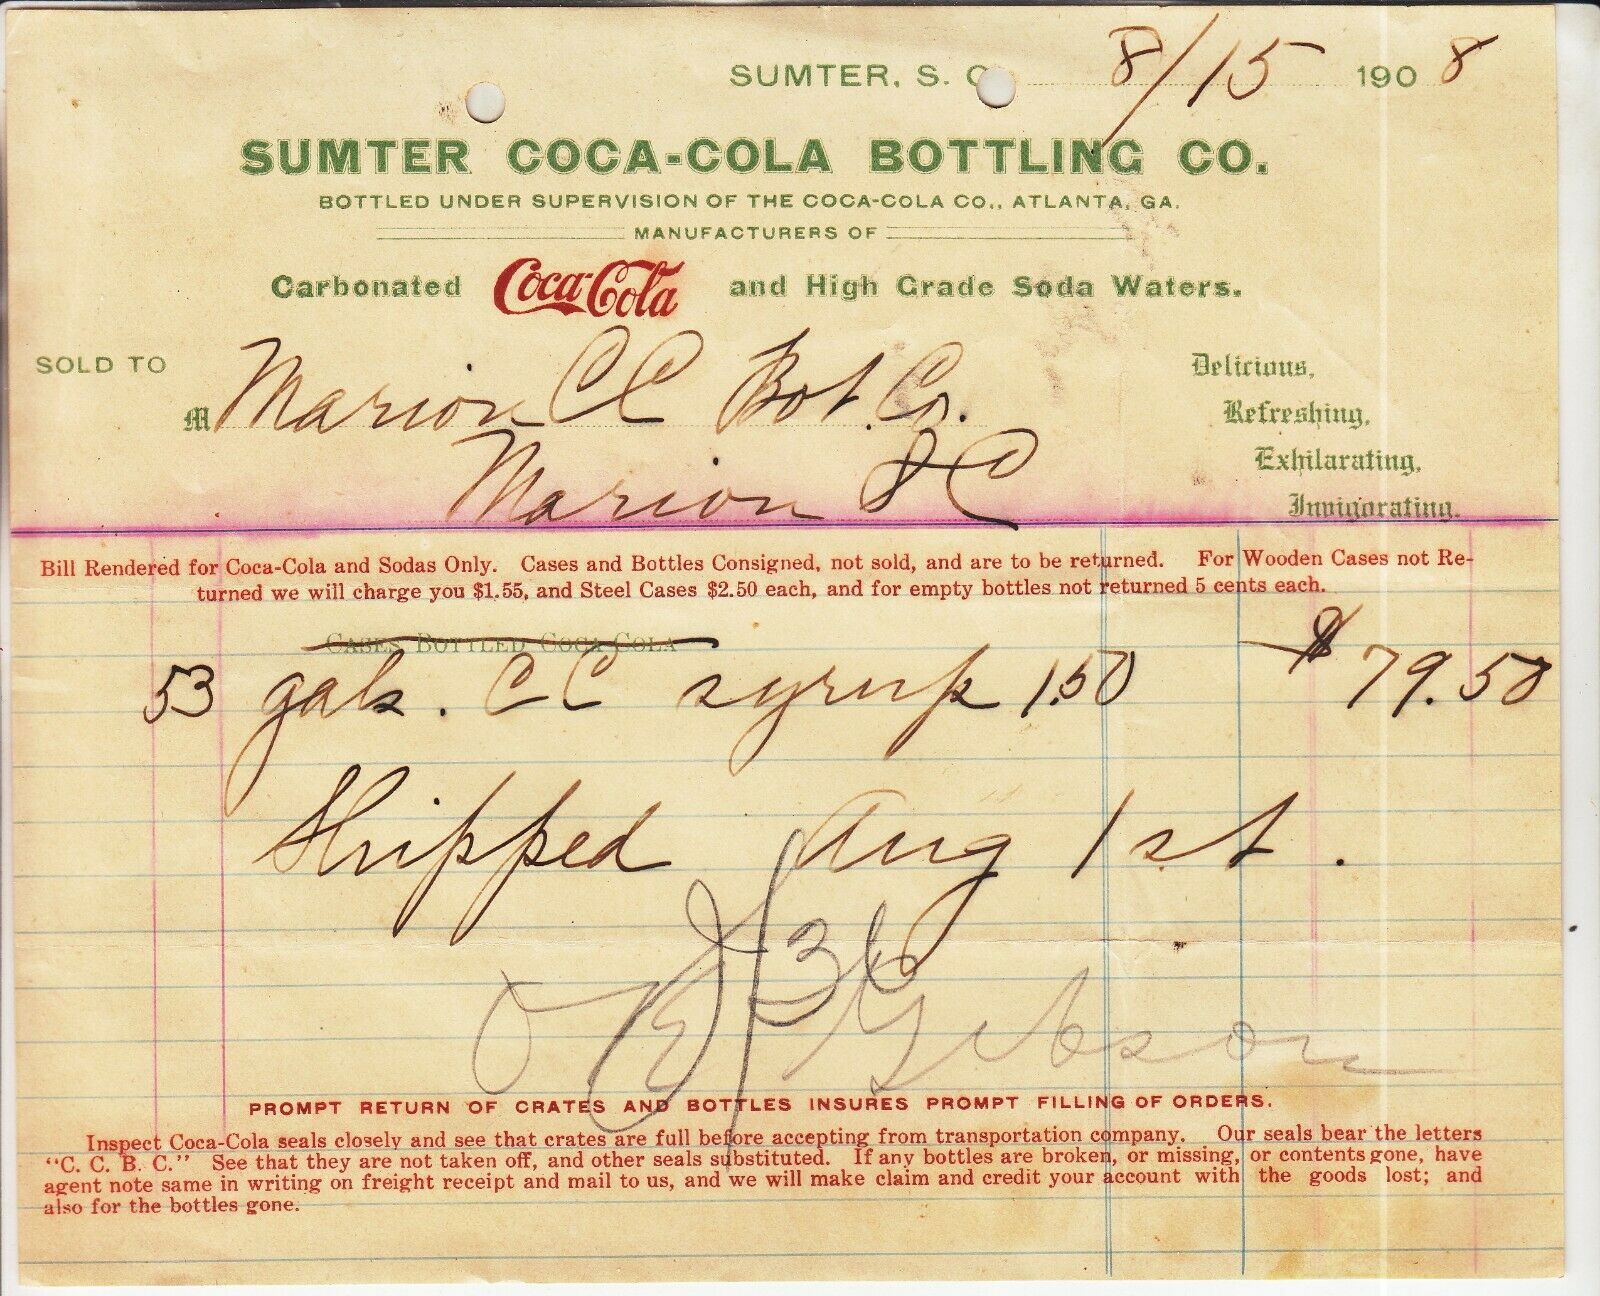 SUMTER, S. C. 8/15 1908
SUMTER COCA-COLA BOTTLING CO.
BOTTLED UNDER SUPERVISION OF THE COCA-COLA CO., ATLANTA, GA.
MANUFACTURERS OF
Carbonated Coca-Cola and High Grade Soda Waters.
SOLD TO
M Marion CC Bot. Co.
Marion S C
Delicious,
Refreshing,
Exhilarating,
Invigorating.
Bill Rendered for Coca-Cola and Sodas Only. Cases and Bottles Consigned, not sold, and are to be returned. For Wooden Cases not Re-
turned we will charge you $1.55, and Steel Cases $2.50 each, and for empty bottles not returned 5 cents each.
CASES BOTTLED COCA-COLA
53 gals. CC syrup 1.50 $79.50
Shipped Aug 1st.
36
OK Gibson
PROMPT RETURN OF CRATES AND BOTTLES INSURES PROMPT FILLING OF ORDERS.
Inspect Coca-Cola seals closely and see that crates are full before accepting from transportation company. Our seals bear the letters
"C. C. B. C." See that they are not taken off, and other seals substituted. If any bottles are broken, or missing, or contents gone, have
agent note same in writing on freight receipt and mail to us, and we will make claim and credit your account with the goods lost; and
also for the bottles gone.